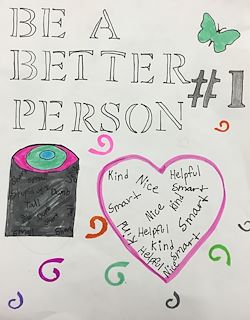 BE A
BETTER
PERSON
#1
Stupid
Dumb
Tall
Small
Kind
Nice
Helpful
Smart
Smart
Nice
Kind
Kind
Helpful
Smart
Kind
Helpful
Nice
Smart